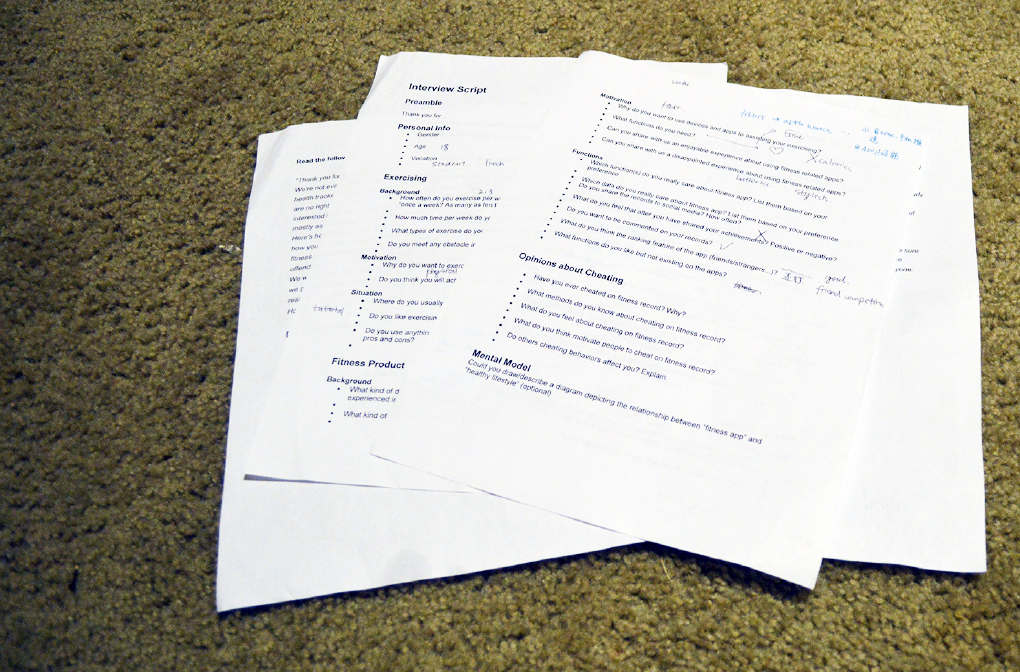 Read the follow
"Thank you for
We're not eve
health tracke
are no right
interested i
mostly as
Here's ho
how you
fitness
offend
We e
we g
real
Ho
Interview Script
Preamble
Thank you for
Personal Info
Gender
Age 18
Vocation
Student fresh
Exercising
2-3
Background
How often do you exercise per w
"once a week? As many as ten t
How much time per week do yo
What types of exercise do you
Do you meet any obstacle in
Motivation
Why do you want to exerc
Do you think you will act
Situation
Where do you usually
Do you like exercisin
Do you use anythin
pros and cons?
Fitness Product
Background
What kind of d
experienced in
What kind of
social
Motivation
Why do you want to use devices and apps to assisting your exercising?
What functions do you need? time
Can you share with us an enjoyable experience about using fitness related apps?
Can you share with us a disappointed experience about using fitness related apps?
calories
Functions
Which function(s) do you really care about fitness app? List them based on your
preference
Which data do you really care about fitness app? List them based on your preference.
Do you share the records to social media? How often?
What do you feel that after you have shared your achievements? Positive or negative?
Do you want to be commented on your records?
What do you think the ranking feature of the app (friends/strangers...)? good.
What functions do you like but not existing on the apps?
friend competition
Opinions about Cheating
Have you ever cheated on fitness record? Why?
What methods do you know about cheating on fitness record?
What do you feel about cheating on fitness record?
What do you think motivate people to cheat on fitness record?
Do others cheating behaviors affect you? Explain.
Mental Model
Could you draw/describe a diagram depicting the relationship between "fitness app" and
"healthy lifestyle" (optional)
sure
yone.